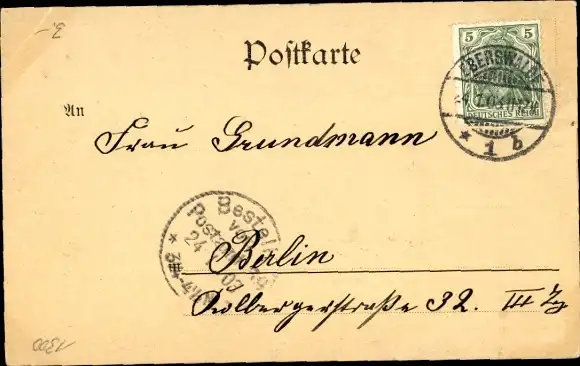 3.-
Postkarte
5 5
EBERSWALDE
7.03.
DEUTSCHES REICH
* 1 b
An
Frau Grundmann
Bestellt
vom
Postamte
24
03
* 3¾-4½N
Berlin
Kolbergerstraße 32. III Tg
1300